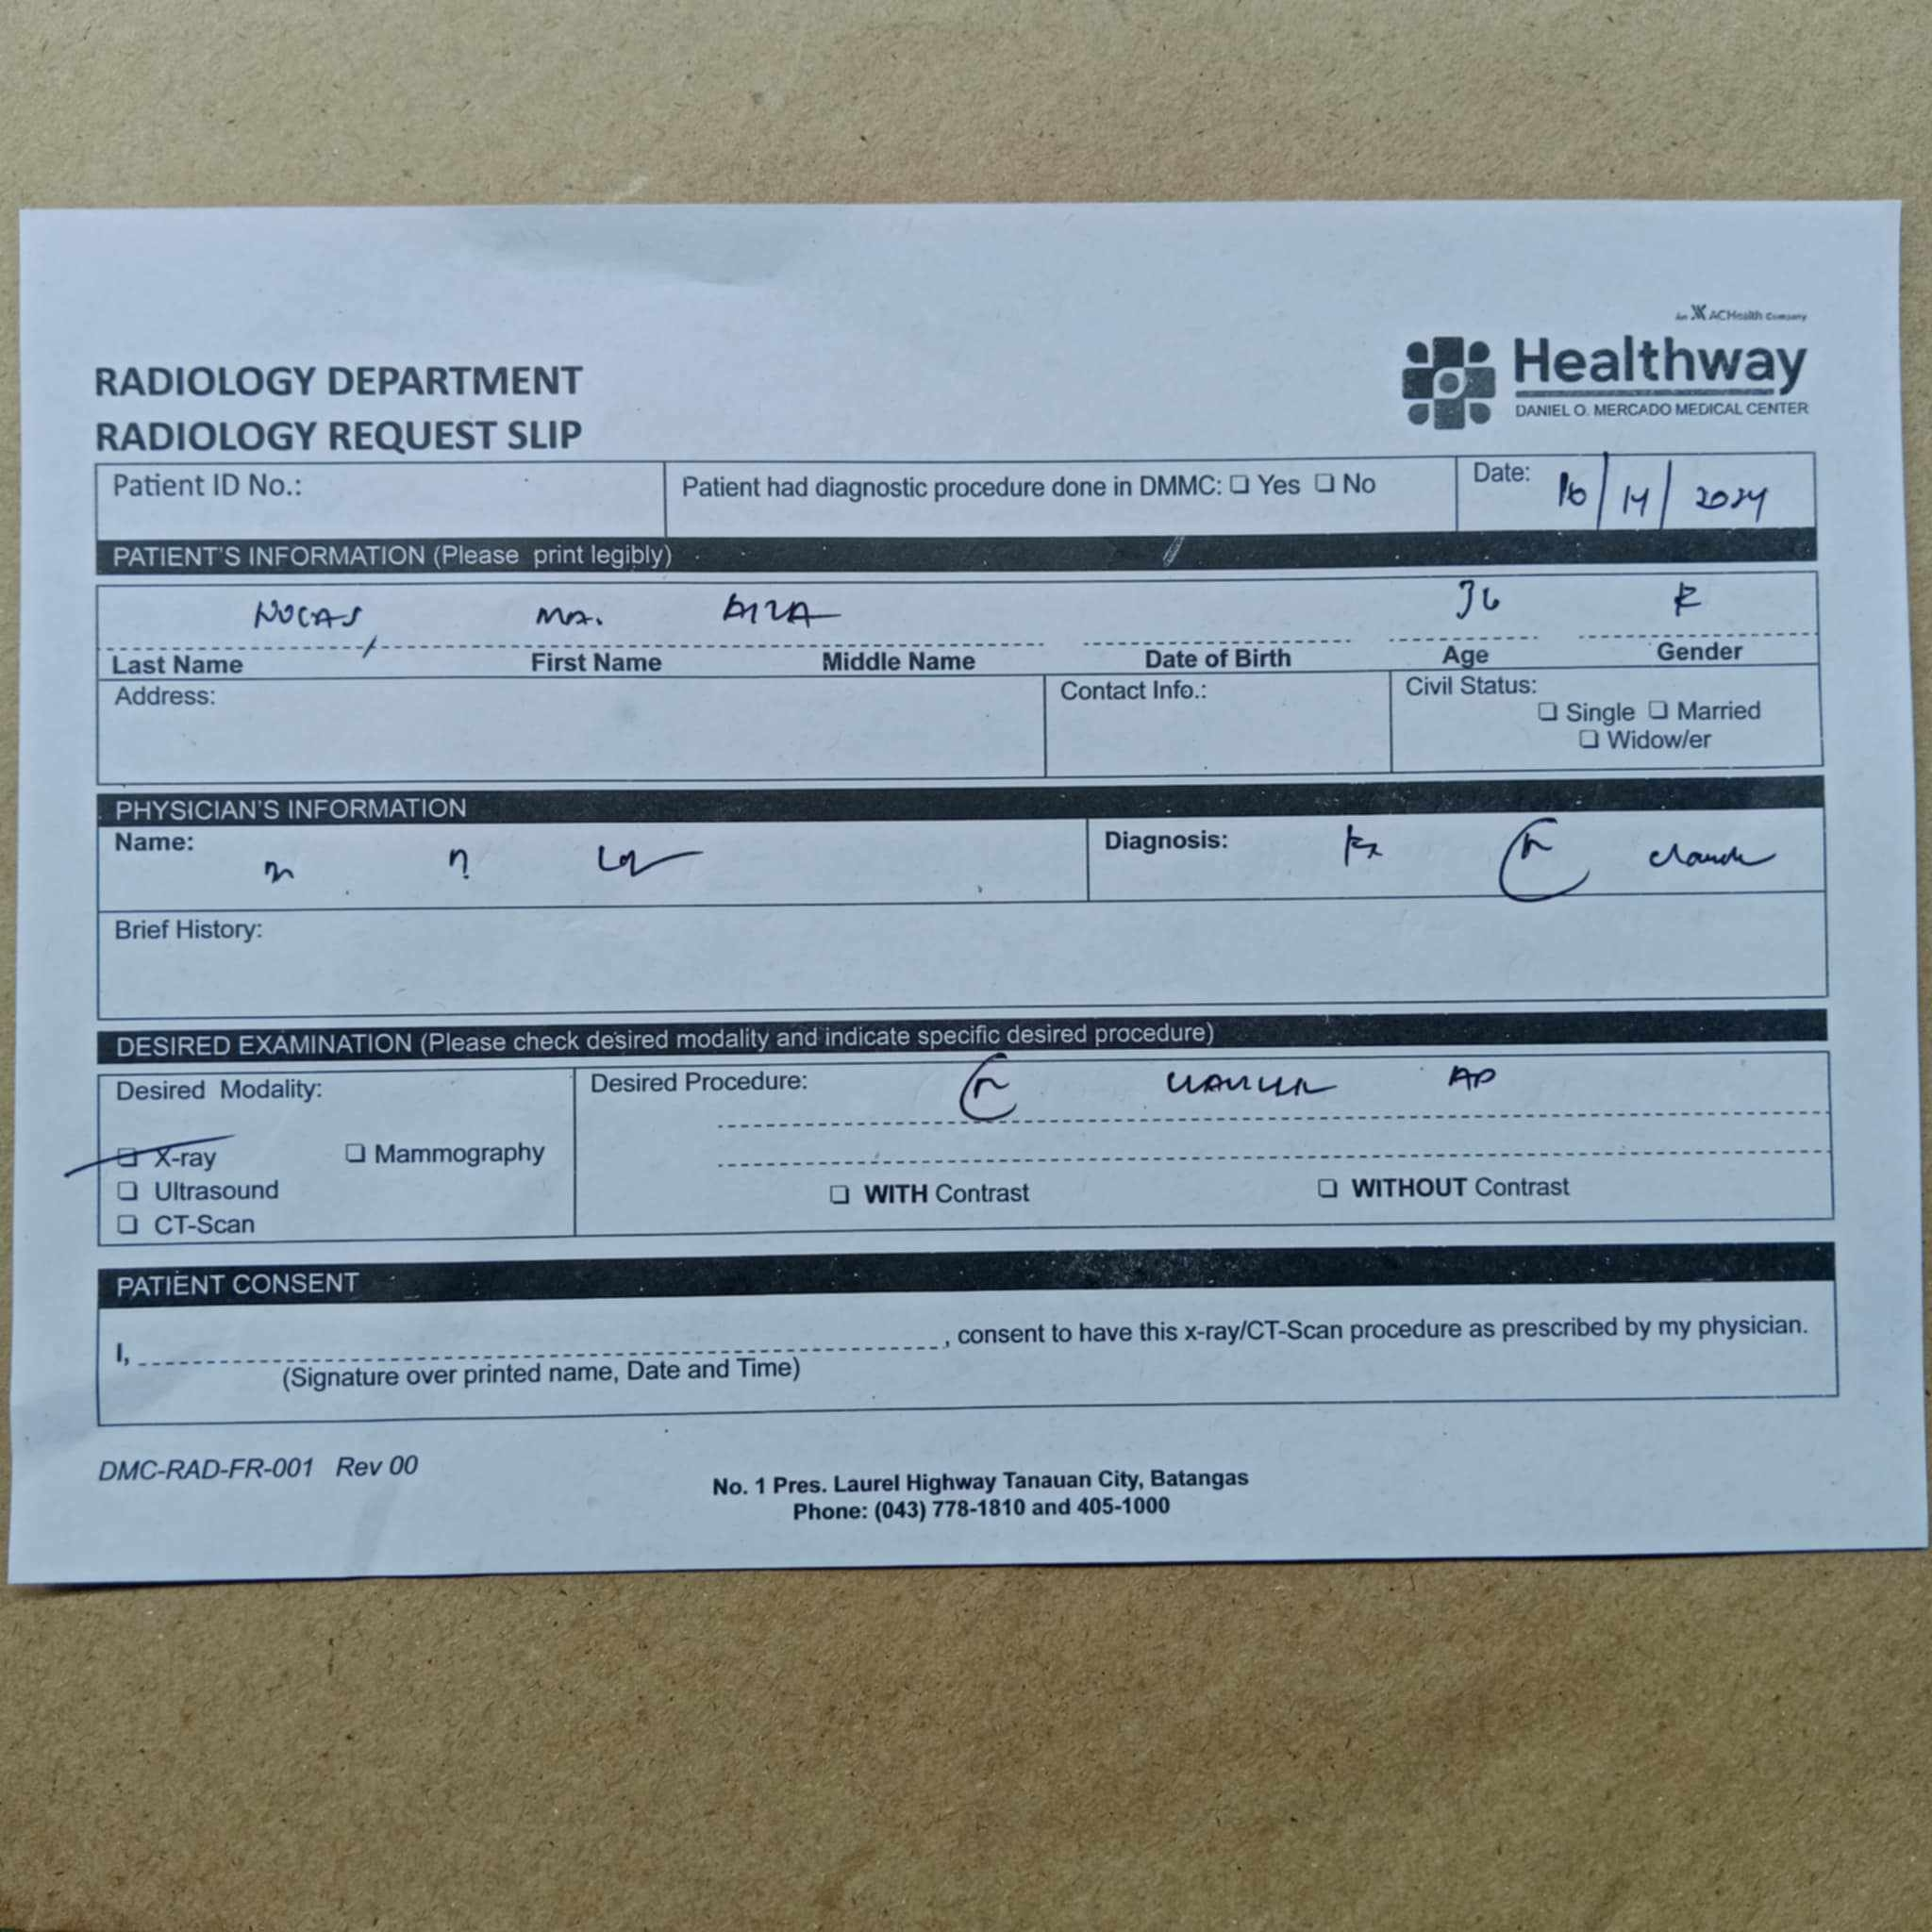 An ACHealth Company
Healthway
DANIEL O. MERCADO MEDICAL CENTER
RADIOLOGY DEPARTMENT
RADIOLOGY REQUEST SLIP
Patient ID No.:
Patient had diagnostic procedure done in DMMC: ❑ Yes ❑ No
Date: 10/14/2024
PATIENT'S INFORMATION (Please print legibly)
MA. AIZA 36 F
Last Name First Name Middle Name Date of Birth Age Gender
Address:
Contact Info.:
Civil Status:
❑ Single ❑ Married
❑ Widow/er
PHYSICIAN'S INFORMATION
Name:
Diagnosis: Fx
Brief History:
DESIRED EXAMINATION (Please check desired modality and indicate specific desired procedure)
Desired Modality:
❑ X-ray ❑ Mammography
❑ Ultrasound
❑ CT-Scan
Desired Procedure: AP
❑ WITH Contrast ❑ WITHOUT Contrast
PATIENT CONSENT
I, , consent to have this x-ray/CT-Scan procedure as prescribed by my physician.
(Signature over printed name, Date and Time)
DMC-RAD-FR-001 Rev 00
No. 1 Pres. Laurel Highway Tanauan City, Batangas
Phone: (043) 778-1810 and 405-1000